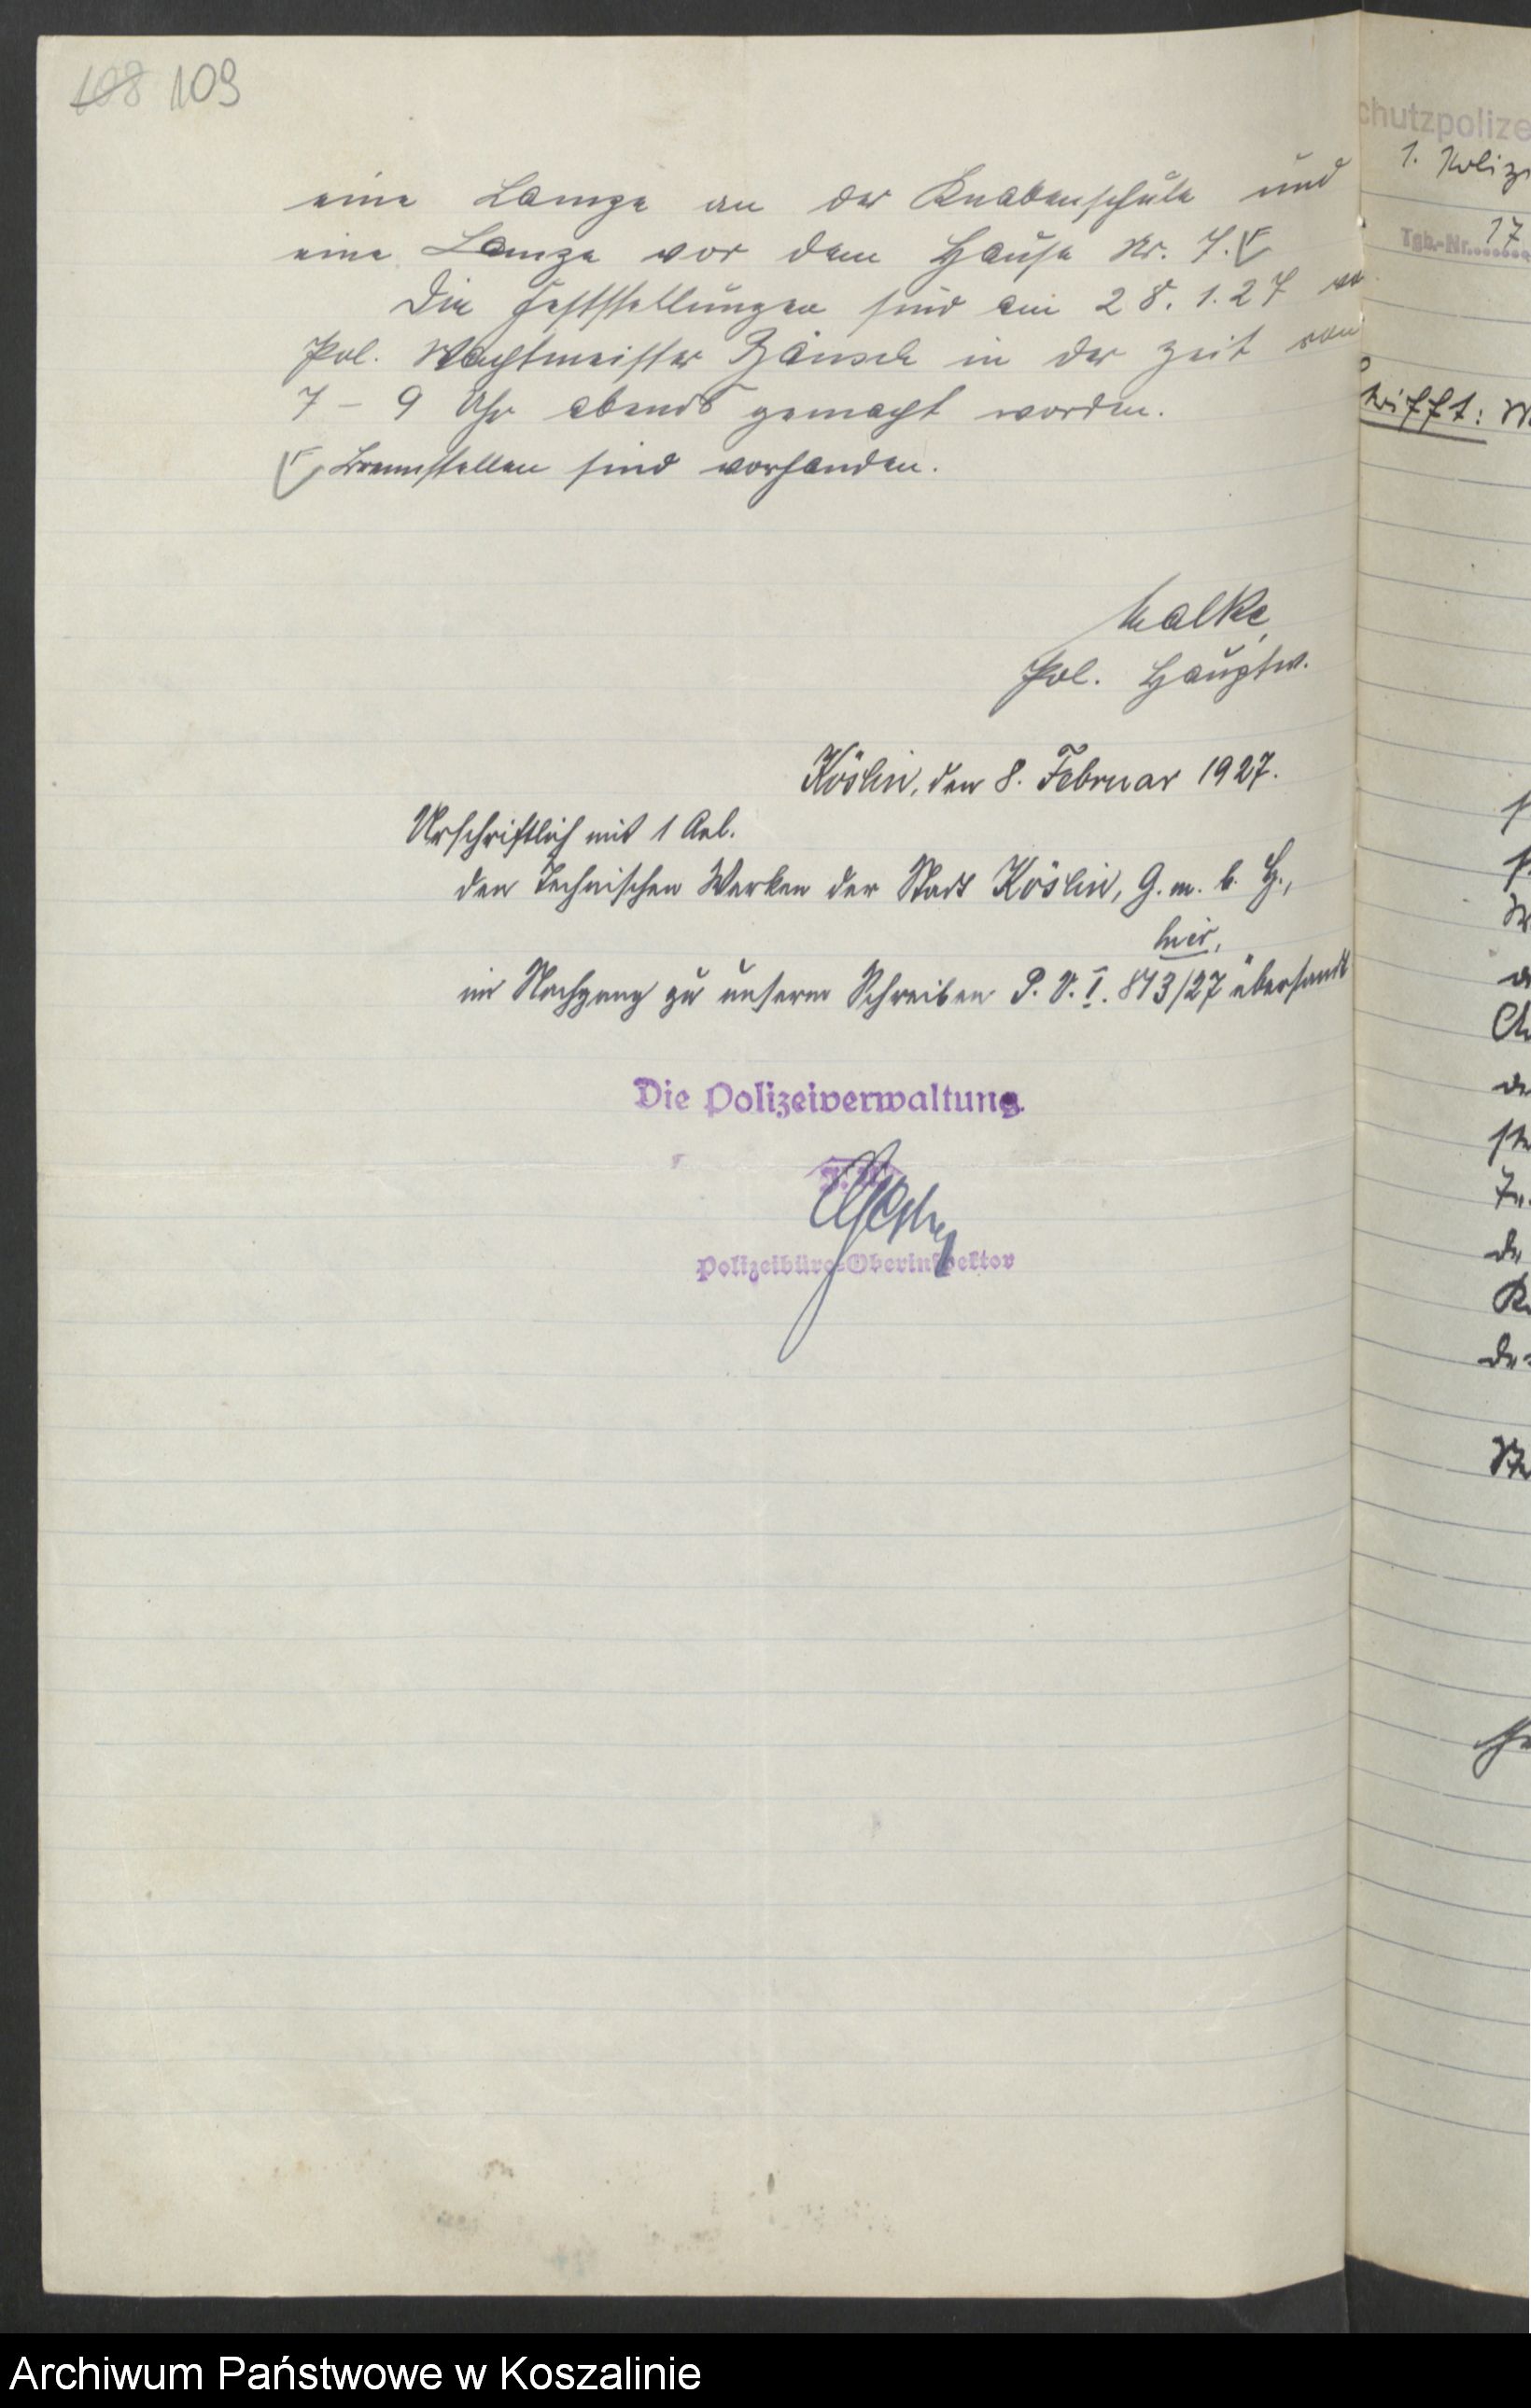 108 109
eine Lampe an der Knabenschule und
eine Lampe vor dem Hause Nr. 7.
Die Feststellungen sind am 28.1.27
Pol. Wachtmeister in der Zeit von
7 – 9 Uhr abends gemacht worden.
Brennstellen sind vorhanden.
Pol. Hauptw.
Köslin, den 8. Februar 1927.
Urschriftlich mit 1 Anl.
den Technischen Werken der Stadt Köslin, G.m.b.H.,
hier,
im Nachgang zu unserm Schreiben P.V.I. 813/27 übersandt
Die Polizeiverwaltung.
Polizeibüro-Oberinspektor
chutzpolize
1. Poliz
Tgb.-Nr. 17
Archiwum Państwowe w Koszalinie